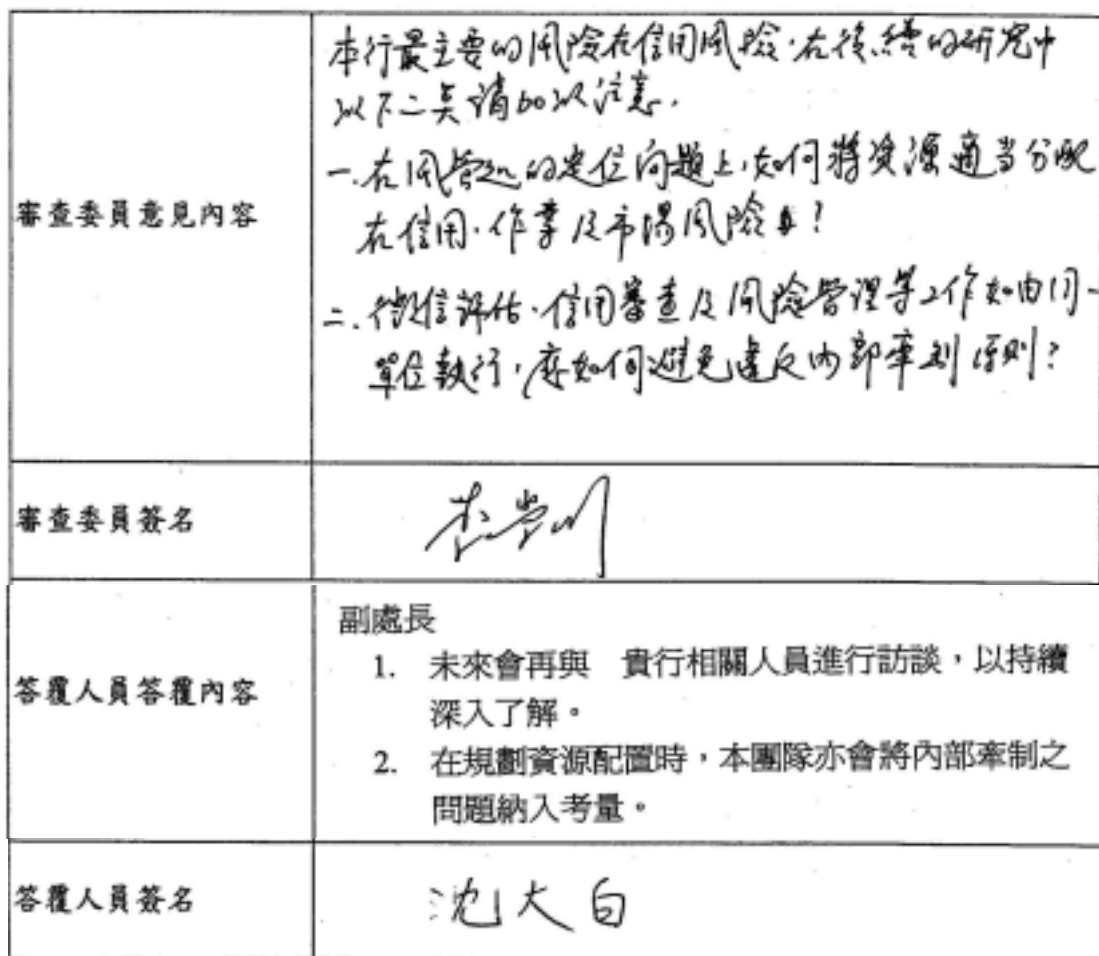 審查委員意見內容
本行最主要的風險在信用風險,在後續的研究中
以下二點請加以注意.
一.在風管处的定位問題上,如何將資源適当分配
在信用.作業及市場風險上?
二.徵信評估.信用審查及風險管理等工作如由同一
單位執行,應如何避免違反內部牽制原則?
審查委員簽名
答覆人員答覆內容
副處長
1. 未來會再與 貴行相關人員進行訪談,以持續
深入了解。
2. 在規劃資源配置時,本團隊亦會將內部牽制之
問題納入考量。
答覆人員簽名
沈大白